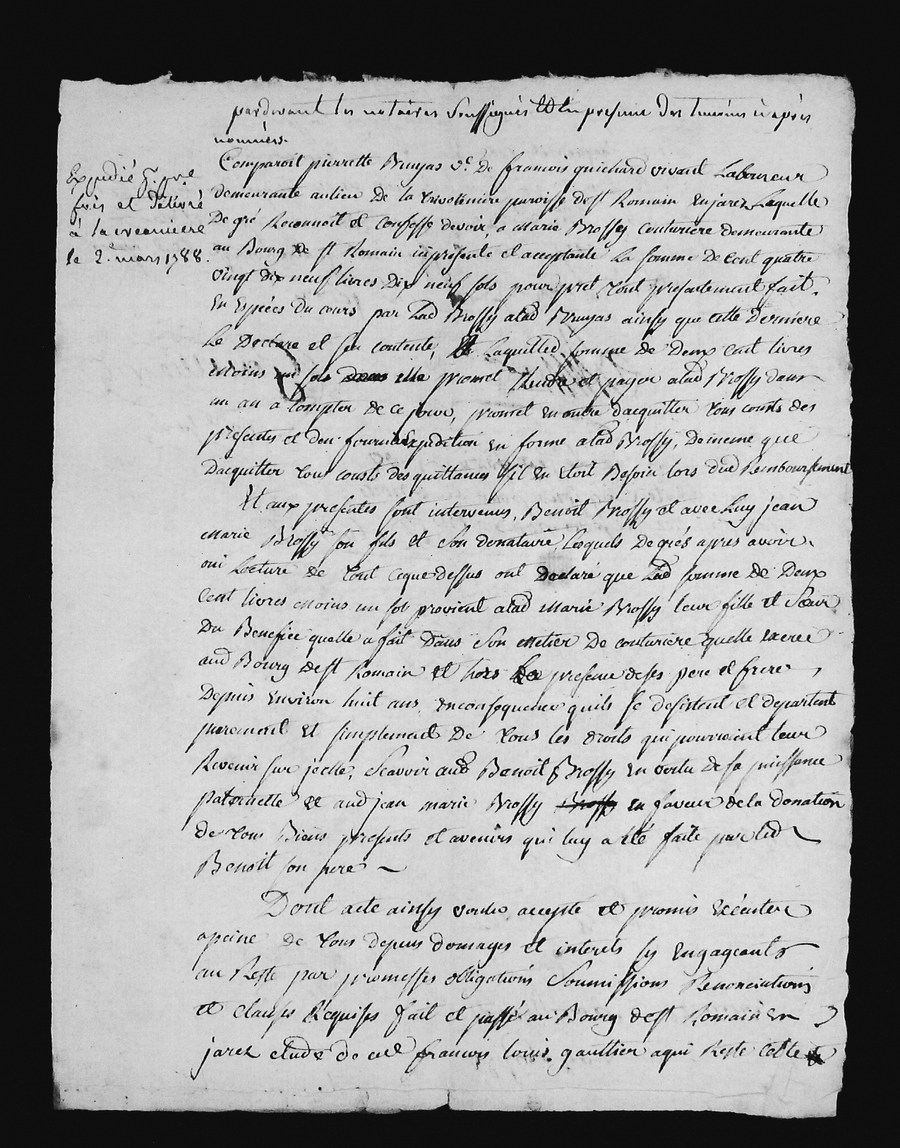 pardevant les notaires soussignés et en presence des temoins ci après
nommés.
Expedié
fois et délivré
à la
le 2. mars 1788.
Comparoit pierrette Bruyas ve. de francois guichard vivant Laboureur
demeurante au lieu de la paroisse de st Romain en jarez Laquelle
De gré Reconnoit et Confesse devoir, a Marie Brossy couturière demeurante
au Bourg de st Romain ici presente et acceptante La somme de Cent quatre
vingt dix neuf livres dix neuf sols pour pret tout presentement fait.
En Espéces du cours par Lad Brossy a lad Bruyas ainsy que cette Derniere
Le Declare et sen contente, Laquelle somme de Deux cent livres
moins un sols promet Rendre et payer a lad Brossy dans
un an a Compter de ce jour, promet en outre dacquitter tous cousts des
presentes et den fournir Expedition en forme a lad Brossy, De meme que
Dacquitter tous cousts des quittances sil en Etoit Besoin lors dud Remboursement
Et aux presentes sont intervenus, Benoit Brossy et avec Luy jean
Marie Brossy son fils et son donataire, Lesquels de grés apres avoir
oui Lecture de tout ceque dessus ont declaré que Lad somme de Deux
Cent livres moins un sol provient a lad Marie Brossy leur fille et Sœur
Du Benefice quelle a fait Dans Son metier De couturiere quelle Exerce
aud Bourg de st Romain et hors La presence de ses pere et frere
Depuis Environ huit ans, en consequence quils se desistent et departent
purement et simplement De tous les droits qui pourroient leur
Revenir sur jcelle, Scavoir aud Benoit Brossy en vertu de sa puissance
paternelle et aud jean marie Brossy en faveur de la donation
de tous Biens presents et avenirs qui luy a eté faite par led
Benoit son pere
Dont acte ainsy voulu, accepté et promis Exécuter
a peine de tous depens domages et interets sy Engageants
au Reste par promesses obligations Soumissions Renonciations
et clauses Requises fait et passé au Bourg de st Romain En
jarez etude de me francois louis gaulthier a qui Reste Cette